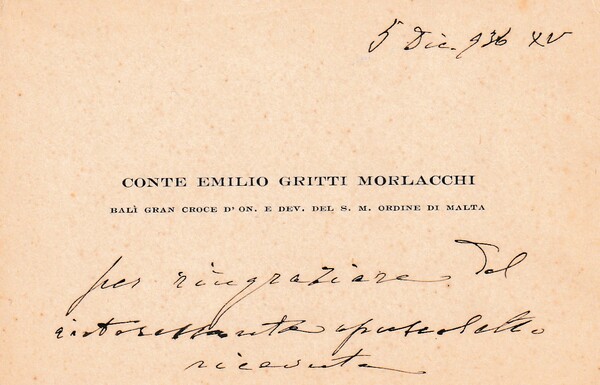 5 Dic. 936 XV
CONTE EMILIO GRITTI MORLACCHI
BALÌ GRAN CROCE D' ON. E DEV. DEL S. M. ORDINE DI MALTA
per ringraziare del
interessante opuscoletto
ricevuto